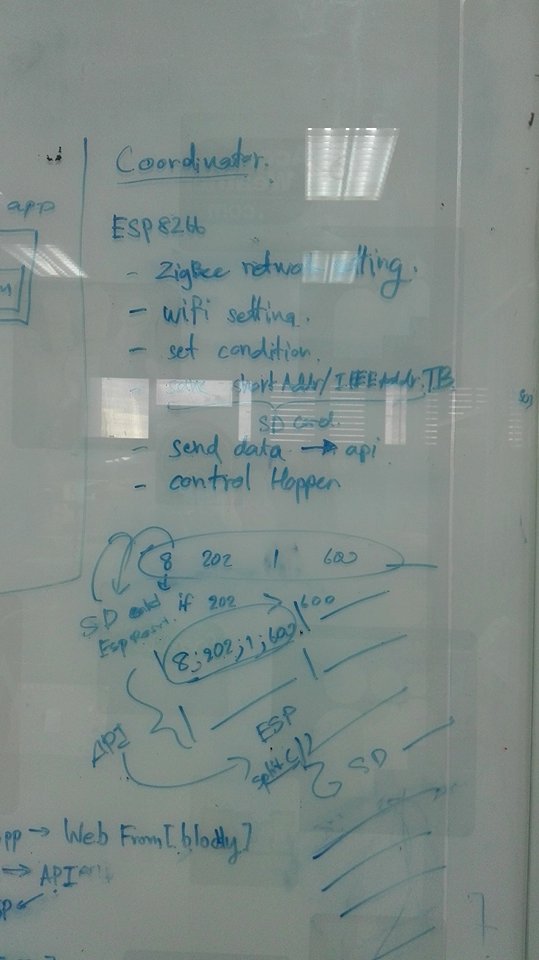 Coordinator.
app
ESP8266
- ZigBee networ setting.
- wifi setting.
- set condition.
- short Addr/IEEEAddr,TB
SD Card.
- send data → api
- control Happen
8 202 1 600
SD
if 202 > 600
8;202;1;600
API
ESP
split
SD
pp → Web From[blocly]
→ API